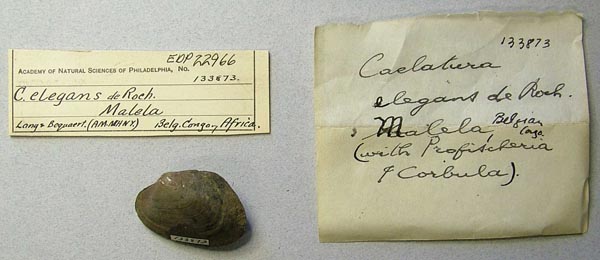 EDP22966
ACADEMY OF NATURAL SCIENCES OF PHILADELPHIA, No.
133873.
C. elegans de Roch.
Malela
Lang & Bequaert. (A.M.N.H.N.Y.) Belg. Congo, Africa.
133873
133873
Caelatura
elegans de Roch.
Malela, Belgian Congo.
(with Profischeria
& Corbula).